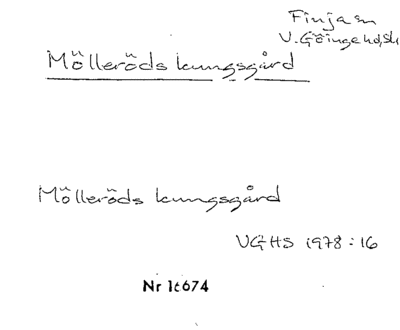 Finja sn
V. Göinge hd, Sk
Mölleröds kungsgård
Mölleröds kungsgård
VGHS 1978:16
Nr 16674